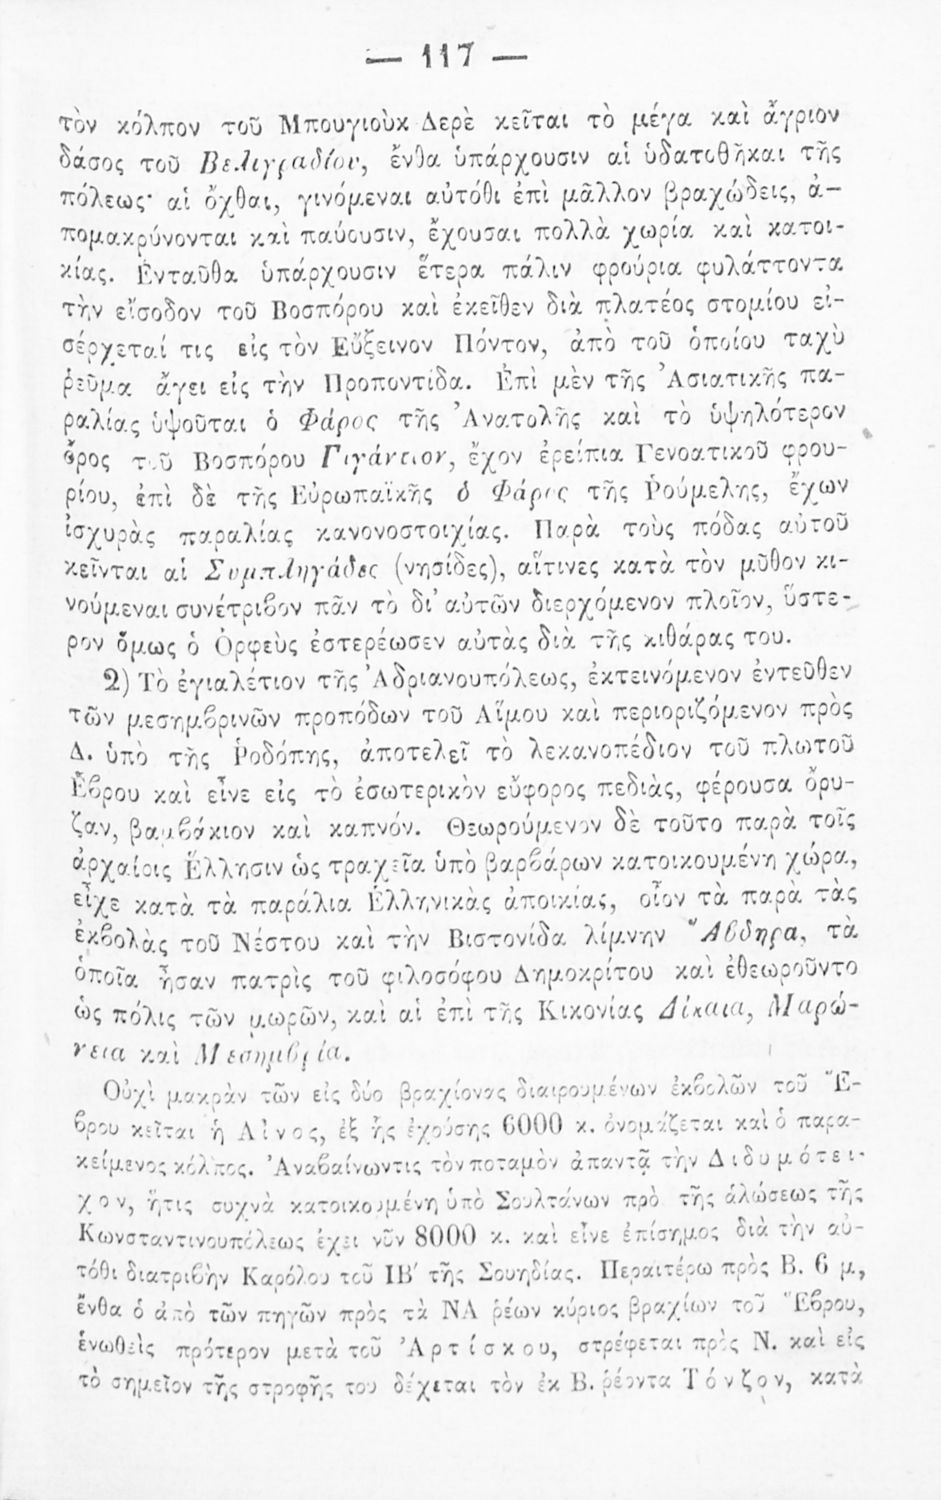 — 117 —
τὸν κόλπον τοῦ Μπουγιοὺκ Δερὲ κεῖται τὸ μέγα καὶ ἄγριον
δάσος τοῦ Βελιγραδίου, ἔνθα ὑπάρχουσιν αἱ ὑδατοθῆκαι τῆς
πόλεως· αἱ ὄχθαι, γινόμεναι αὐτόθι ἐπὶ μᾶλλον βραχώδεις, ἀ-
πομακρύνονται καὶ παύουσιν, ἔχουσαι πολλὰ χωρία καὶ κατοι-
κίας. Ἐνταῦθα ὑπάρχουσιν ἕτερα πάλιν φρούρια φυλάττοντα
τὴν εἴσοδον τοῦ Βοσπόρου καὶ ἐκεῖθεν διὰ πλατέος στομίου εἰ-
σέρχεταί τις εἰς τὸν Εὔξεινον Πόντον, ἀπὸ τοῦ ὁποίου ταχὺ
ῥεῦμα ἄγει εἰς τὴν Προποντίδα. Ἐπὶ μὲν τῆς Ἀσιατικῆς πα-
ραλίας ὑψοῦται ὁ Φάρος τῆς Ἀνατολῆς καὶ τὸ ὑψηλότερον
ὄρος τοῦ Βοσπόρου Γιγάντιον, ἔχον ἐρείπια Γενοατικοῦ φρου-
ρίου, ἐπὶ δὲ τῆς Εὐρωπαϊκῆς ὁ Φάρος τῆς Ῥούμελης, ἔχων
ἰσχυρὰς παραλίας κανονοστοιχίας. Παρὰ τοὺς πόδας αὐτοῦ
κεῖνται αἱ Συμπληγάδες (νησίδες), αἵτινες κατὰ τὸν μῦθον κι-
νούμεναι συνέτριβον πᾶν τὸ δι' αὐτῶν διερχόμενον πλοῖον, ὕστε-
ρον ὅμως ὁ Ὀρφεὺς ἐστερέωσεν αὐτὰς διὰ τῆς κιθάρας του.
2) Τὸ ἐγιαλέτιον τῆς Ἀδριανουπόλεως, ἐκτεινόμενον ἐντεῦθεν
τῶν μεσημβρινῶν προπόδων τοῦ Αἵμου καὶ περιοριζόμενον πρὸς
Δ. ὑπὸ τῆς Ῥοδόπης, ἀποτελεῖ τὸ λεκανοπέδιον τοῦ πλωτοῦ
Ἕβρου καὶ εἶνε εἰς τὸ ἐσωτερικὸν εὔφορος πεδιὰς, φέρουσα ὄρυ-
ζαν, βαμβάκιον καὶ καπνόν. Θεωρούμενον δὲ τοῦτο παρὰ τοῖς
ἀρχαίοις Ἕλλησιν ὡς τραχεῖα ὑπὸ βαρβάρων κατοικουμένη χώρα,
εἶχε κατὰ τὰ παράλια Ἑλληνικὰς ἀποικίας, οἷον τὰ παρὰ τὰς
ἐκβολὰς τοῦ Νέστου καὶ τὴν Βιστονίδα λίμνην Ἄβδηρα, τὰ
ὁποῖα ἦσαν πατρὶς τοῦ φιλοσόφου Δημοκρίτου καὶ ἐθεωροῦντο
ὡς πόλις τῶν μωρῶν, καὶ αἱ ἐπὶ τῆς Κικονίας Δίκαια, Μαρώ-
νεια καὶ Μεσημβρία.
Οὐχὶ μακρὰν τῶν εἰς δύο βραχίονας διαιρουμένων ἐκβολῶν τοῦ Ἕ-
βρου κεῖται ἡ Αἶνος, ἐξ ἧς ἐχούσης 6000 κ. ὀνομάζεται καὶ ὁ παρα-
κείμενος κόλπος. Ἀναβαίνων τις τὸν ποταμὸν ἀπαντᾷ τὴν Διδυμότει-
χον, ἥτις συχνὰ κατοικουμένη ὑπὸ Σουλτάνων πρὸ τῆς ἁλώσεως τῆς
Κωνσταντινουπόλεως ἔχει νῦν 8000 κ. καὶ εἶνε ἐπίσημος διὰ τὴν αὐ-
τόθι διατριβὴν Καρόλου τοῦ ΙΒ' τῆς Σουηδίας. Περαιτέρω πρὸς Β. 6 μ,
ἔνθα ὁ ἀπὸ τῶν πηγῶν πρὸς τὰ ΝΑ ῥέων κύριος βραχίων τοῦ Ἕβρου,
ἑνωθεὶς πρότερον μετὰ τοῦ Ἀρτίσκου, στρέφεται πρὸς Ν. καὶ εἰς
τὸ σημεῖον τῆς στροφῆς του δέχεται τὸν ἐκ Β. ῥέοντα Τόνζον, κατὰ